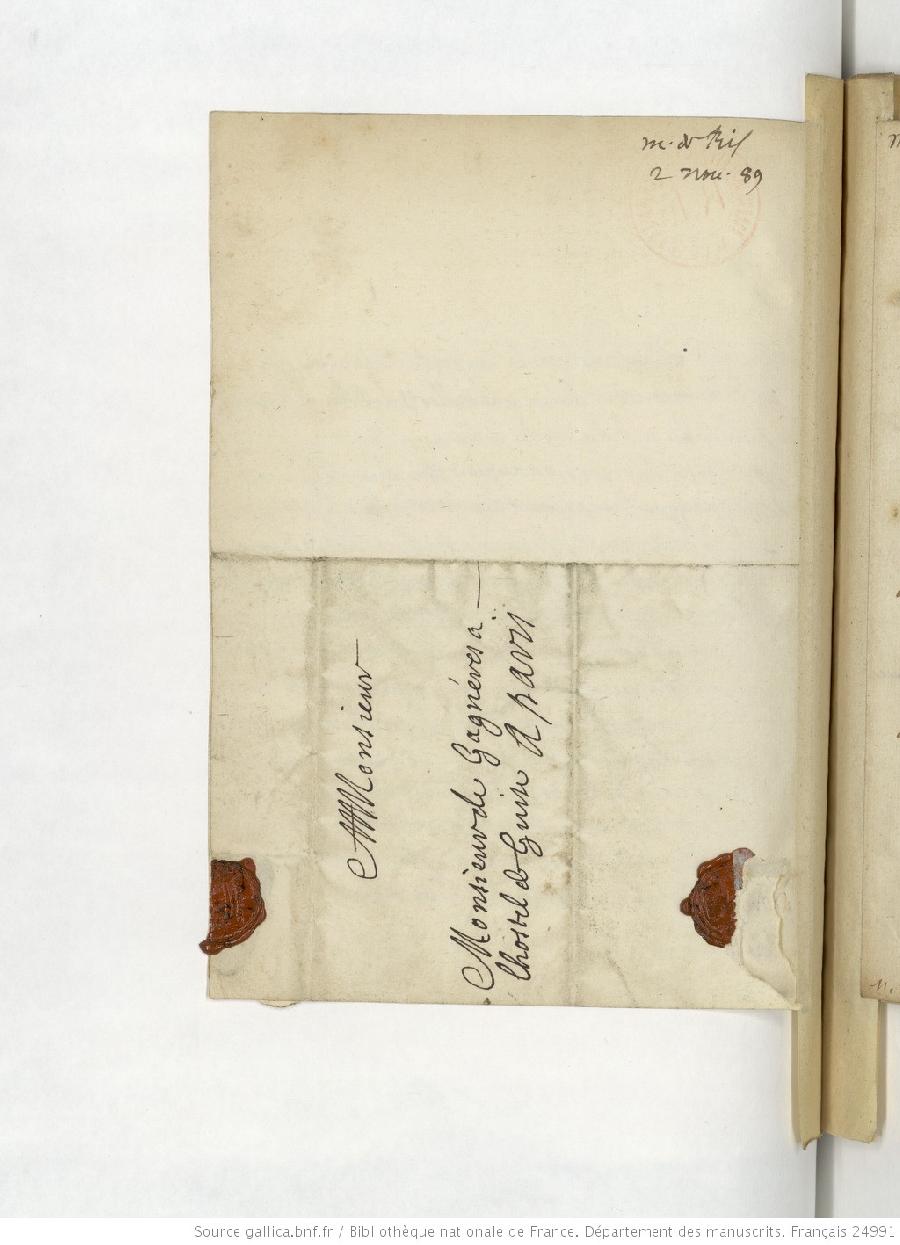 m. de Ris
2 nou. 89
Monsieur
Monsieur de Gagnéres a
lhostel de Guise A paris
Source gallica.bnf.fr / Bibliothèque nationale de France. Département des manuscrits. Français 24991